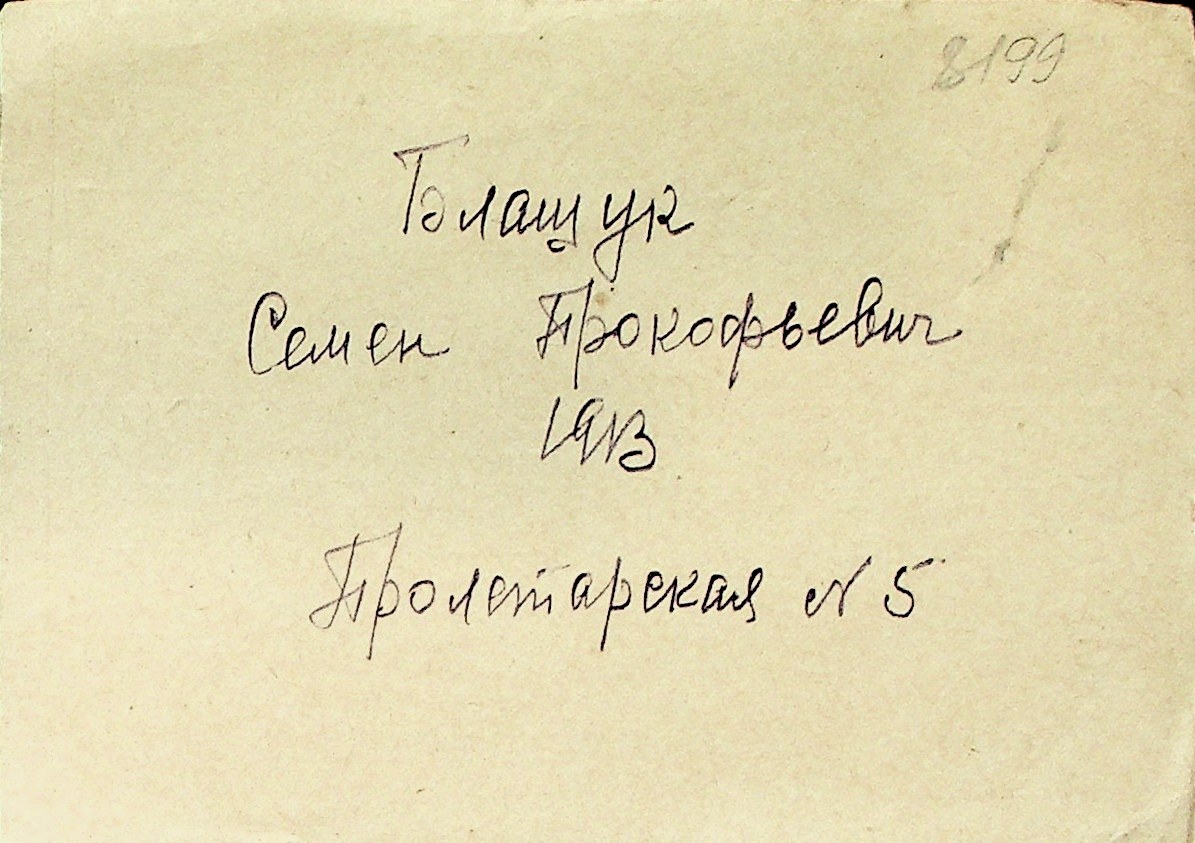 8199
Блащук
Семен Прокофьевич
1913
Пролетарская N 5